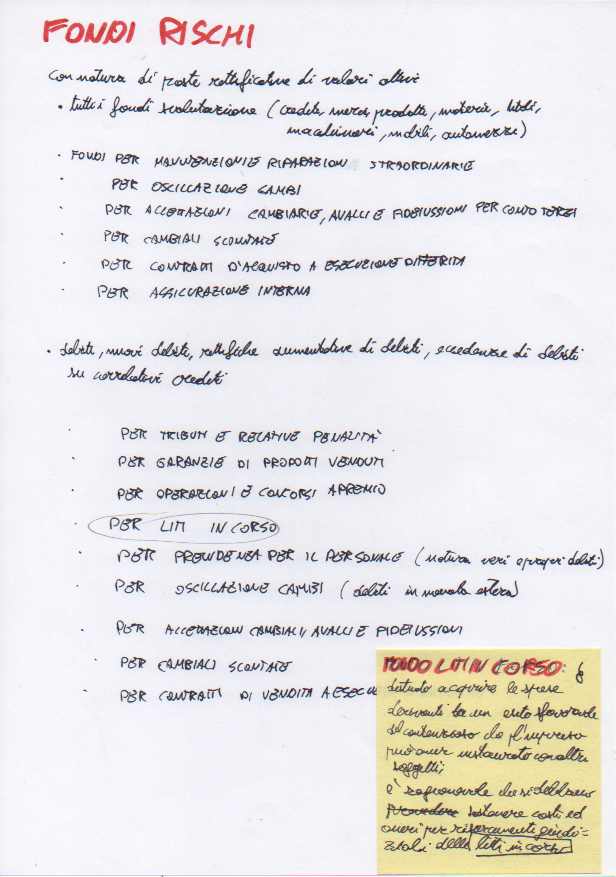 FONDI RISCHI
con natura di poste rettificative di valori attivi
• tutti i fondi svalutazione (crediti, merci, prodotti, materie, titoli,
macchinari, mobili, automezzi)
• FONDI PER MANUTENZIONI E RIPARAZIONI STRAORDINARIE
• PER OSCILLAZIONE CAMBI
• PER ACCETTAZIONI CAMBIARIE, AVALLI E FIDEIUSSIONI PER CONTO TERZI
• PER CAMBIALI SCONTATE
• PER CONTRATTI D'ACQUISTO A ESECUZIONE DIFFERITA
• PER ASSICURAZIONE INTERNA
• debiti, nuovi debiti, rettifiche aumentative di debiti, eccedenze di debiti
su correlativi crediti
• PER TRIBUTI E RELATIVE PENALITÀ
• PER GARANZIE DI PRODOTTI VENDUTI
• PER OPERAZIONI E CONCORSI A PREMIO
• PER LITI IN CORSO
• PER PREVIDENZA PER IL PERSONALE (natura veri e propri debiti)
• PER OSCILLAZIONE CAMBI (debiti in moneta estera)
• PER ACCETTAZIONI CAMBIALI, AVALLI E FIDEIUSSIONI
• PER CAMBIALI SCONTATE
• PER CONTRATTI DI VENDITA A ESECU
FONDO LITI IN CORSO:
acquire le spese
derivanti da un esito sfavorevole
del contenzioso che l'impresa
può aver instaurato con altri
soggetti;
è ragionevole che si debbano
sostenere costi ed
oneri per risarcimenti giudi-
ziali delle liti in corso